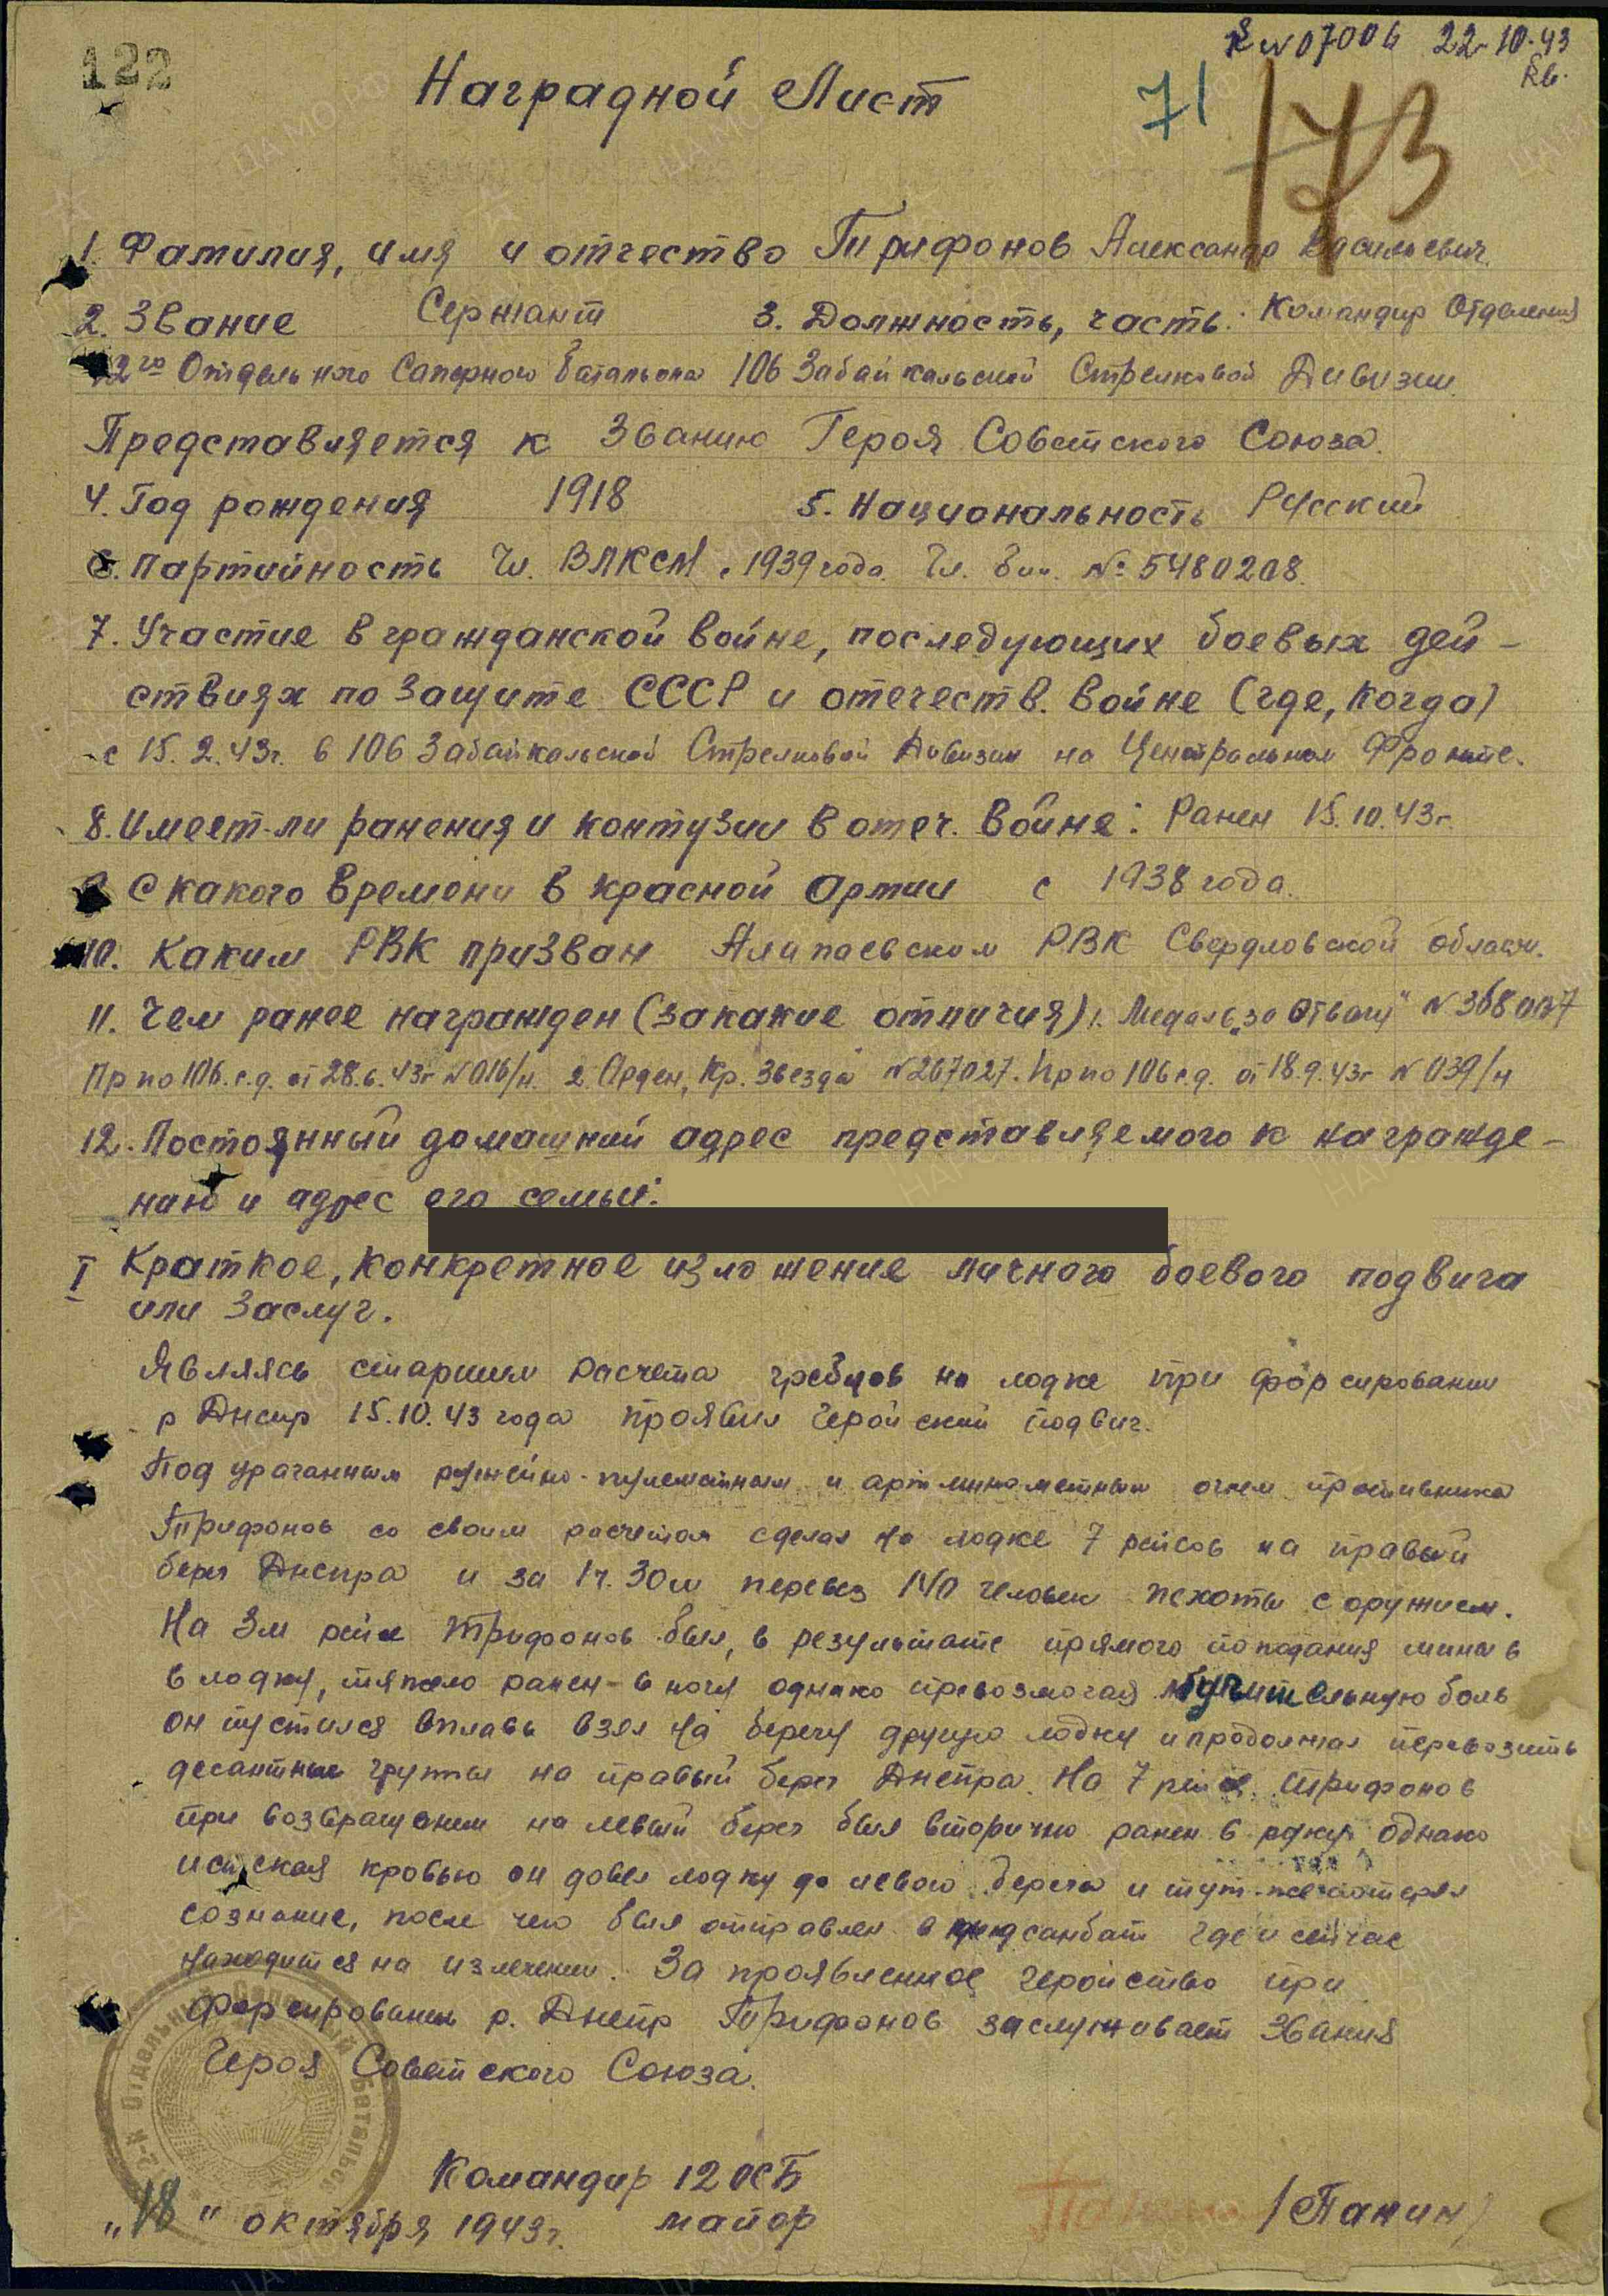 122
22-10-43
71
173
Наградной Лист
1. Фамилия, имя и отчество Трифонов Александр Васильевич
2. Звание Сержант 3. Должность, часть: Командир Отделения
12го Отдельного Саперного батальона 106 Забайкальской Стрелковой Дивизии
Представляется к Званию Героя Советского Союза.
4. Год рождения 1918 5. Национальность Русский
6. Партийность Чл. ВЛКСМ с 1939 года. Чл. бил. № 5480208
7. Участие в гражданской войне, последующих боевых дей-
ствиях по защите СССР и отечеств. войне (где, когда)
с 15.2.43г. в 106 Забайкальской Стрелковой Дивизии на Центральном Фронте.
8. Имеет-ли ранения и контузии в отеч. войне: Ранен 15.10.43г.
9 С какого времени в красной армии с 1938 года.
10. Каким РВК призван Алапаевским РВК Свердловской области.
11. Чем ранее награжден (за какие отличия) 1. Медаль „за Отвагу"
Пр по 106.с.д. от 28.6.43г №016/н. 2. Орден „Кр. Звезда" №267027. Пр по 106 с.д. от 18.9.43г №039/н
12. Постоянный домашний адрес представляемого к награжде-
нию и адрес его семьи:
I Краткое, конкретное изложение личного боевого подвига
или заслуг.
Являясь старшим расчета гребцов на лодке при форсировании
р Днепр 15.10.43 года проявил геройский подвиг.
Под ураганным ружейно-пулеметным и арт минометным огнем противника
Трифонов со своим расчетом сделал на лодке 7 рейсов на правый
берег Днепра и за 1ч.30м перевез 140 человек пехоты с оружием.
На 3м рейсе Трифонов был, в результате прямого попадания мины в
в лодку, тяжело ранен в ногу однако превозмогая мучительную боль
он пустился вплавь взял на берегу другую лодку и продолжал перевозить
десантные группы на правый берег Днепра. На 7 рейсе Трифонов
при возвращении на левый берег был вторично ранен в руку однако
истекая кровью он довел лодку до левого берега и тут же потерял
сознание, после чего был отправлен в медсанбат где и сейчас
находится на излечении. За проявленное геройство при
форсировании р. Днепр Трифонов заслуживает звания
Героя Советского Союза.
Отдельный Саперный Батальон
Командир 12 ОСБ
„18" октября 1943г. майор /Панин/